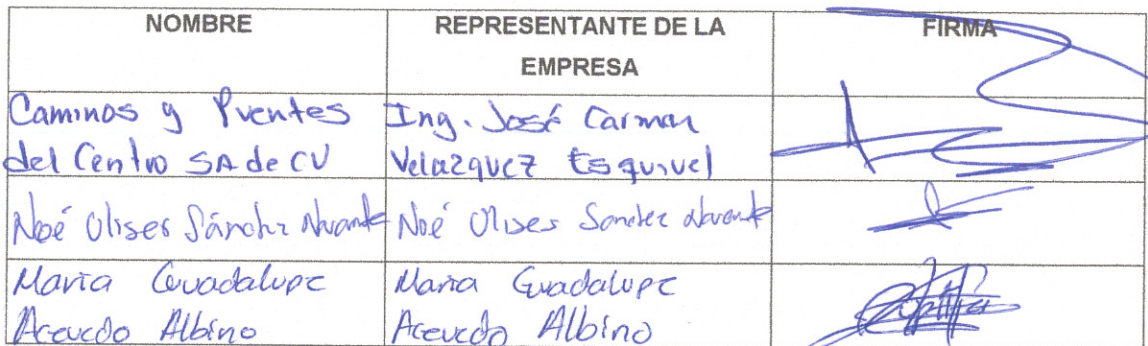 NOMBRE
REPRESENTANTE DE LA
EMPRESA
FIRMA
Caminos y Puentes
del Centro SA de CV
Ing. José Carmen
Velazquez Esquivel
Noé Ulises Sánchez
Noé Ulises Sanchez
Maria Guadalupe
Acevedo Albino
Maria Guadalupe
Acevedo Albino